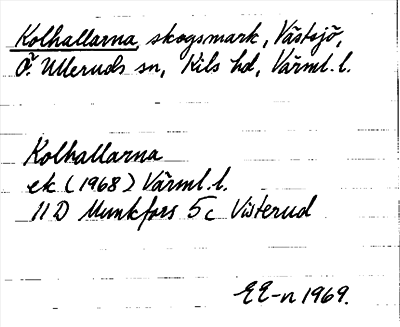 Kolhallarna, skogsmark, Västsjö,
Ö. Ulleruds sn, Kils hd, Värml. l.
Kolhallarna
ek (1968) Värml. l.
11D Munkfors 5c Visterud
EE-n 1969.